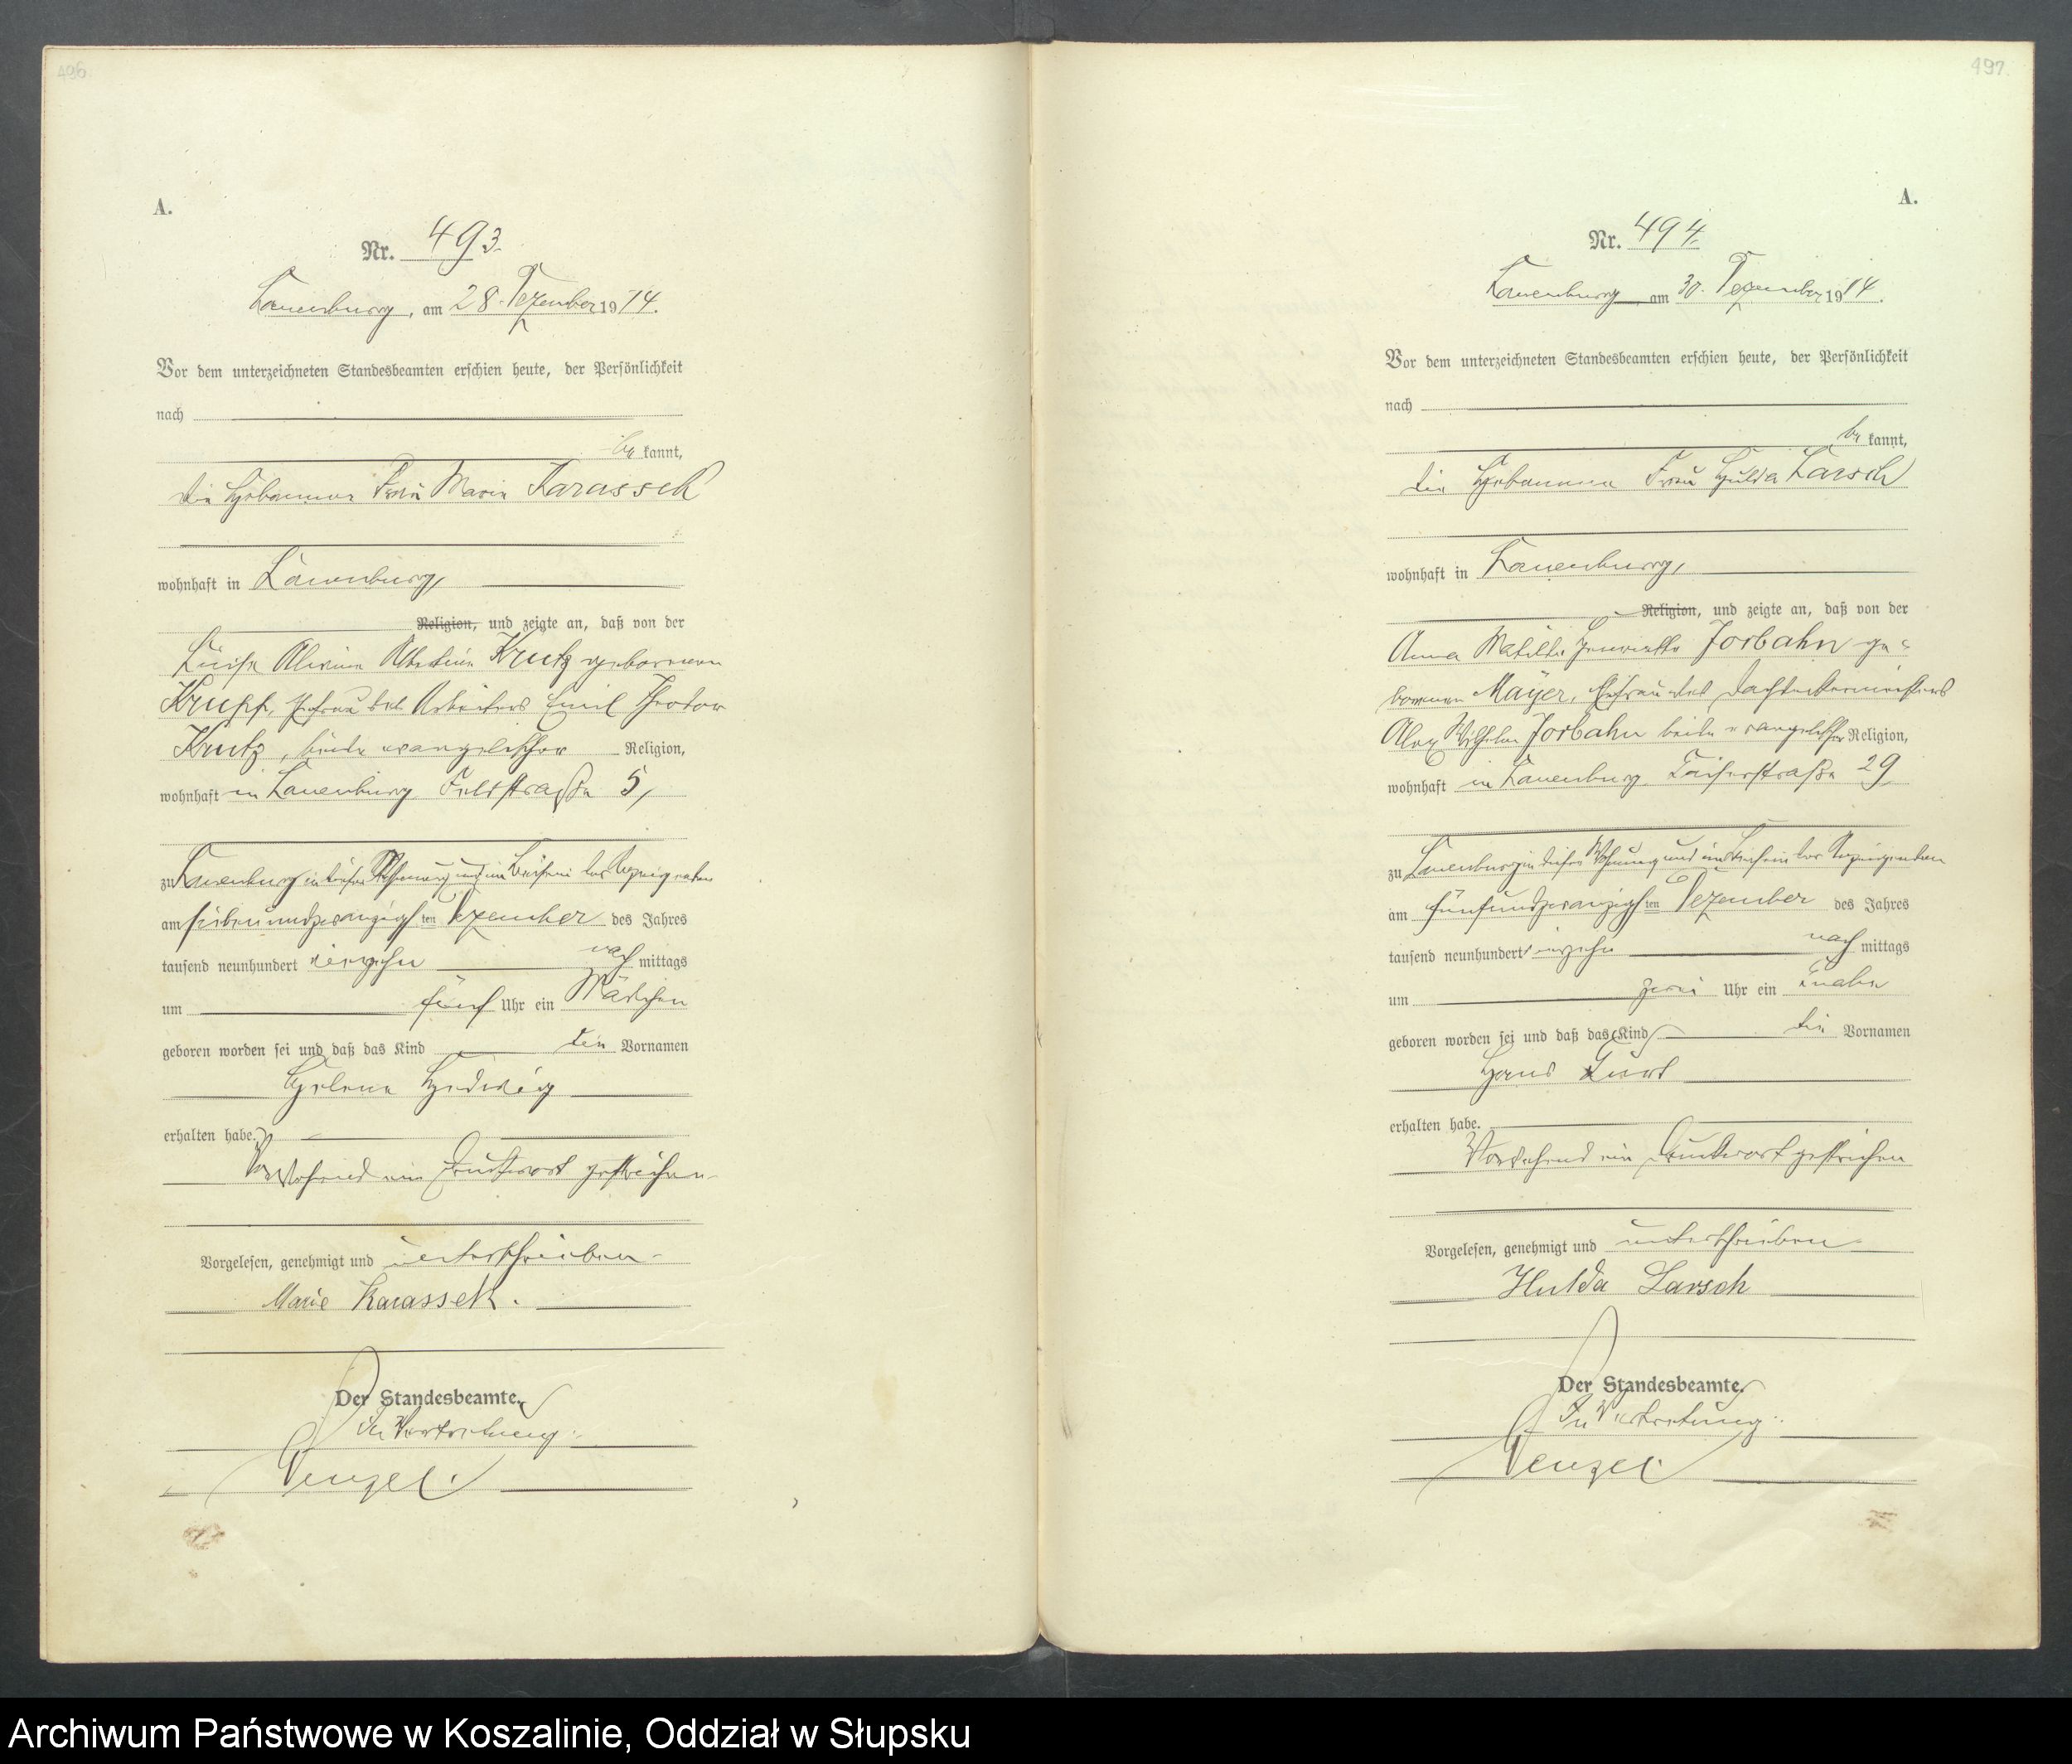 496
A.
Nr. 493.
Lauenburg, am 28. Dezember 1914.
Vor dem unterzeichneten Standesbeamten erschien heute, der Persönlichkeit
nach
be kannt,
die Hebamme Frau Marie Karasseck
wohnhaft in Lauenburg,
Religion, und zeigte an, daß von der
Luise Alwine Albertine Krutz geborenen
Krupp, Ehefrau des Arbeiters Emil Theodor
Krutz, beide evangelischer Religion,
wohnhaft in Lauenburg Feldstraße 5,
zu Lauenburg in dieser Wohnung und im Beisein der Anzeigenden
am siebenundzwanzigsten Dezember des Jahres
tausend neunhundert vierzehn nach mittags
um fünf Uhr ein Mädchen
geboren worden sei und daß das Kind die Vornamen
Helene Hedwig
erhalten habe.
Vorstehend ein Druckwort gestrichen.
Vorgelesen, genehmigt und unterschrieben
Marie Karasseck.
Der Standesbeamte.
In Vertretung:
Wenzel.
497.
A.
Nr. 494.
Lauenburg am 30. Dezember 1914.
Vor dem unterzeichneten Standesbeamten erschien heute, der Persönlichkeit
nach
be kannt,
die Hebamme Frau Hulda Larsch
wohnhaft in Lauenburg,
Religion, und zeigte an, daß von der
Anna Matilde Henriette Jorbahn ge-
borenen Mayer, Ehefrau des Dachdeckermeisters
Alex Wilhelm Jorbahn beide evangelischer Religion,
wohnhaft in Lauenburg 29
zu Lauenburg in dieser Wohnung und im Beisein der Anzeigenden
am fünfundzwanzigsten Dezember des Jahres
tausend neunhundert vierzehn nach mittags
um zwei Uhr ein Knabe
geboren worden sei und daß das Kind die Vornamen
Hans Kurt
erhalten habe.
Vorstehend ein Druckwort gestrichen
Vorgelesen, genehmigt und unterschrieben
Hulda Larsch
Der Standesbeamte.
In Vertretung:
Wenzel.
Archiwum Państwowe w Koszalinie, Oddział w Słupsku